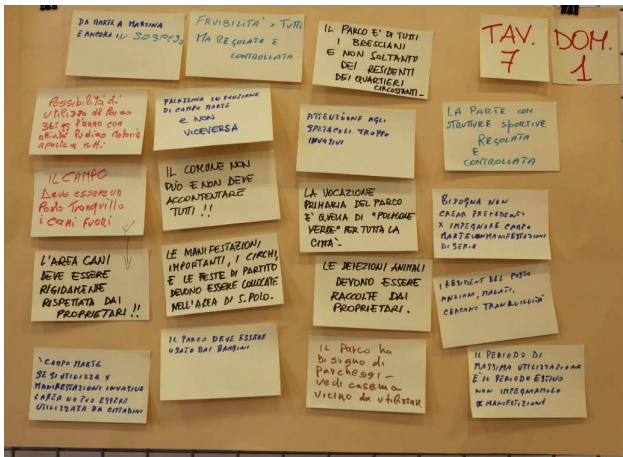 DA MARTE A MARTINA
E ANCORA IN SOSPESO
FRUIBILITA' X TUTTI
MA REGOLATA E
CONTROLLATA
IL PARCO E' DI TUTTI
I BRESCIANI
E NON SOLTANTO
DEI RESIDENTI
DEI QUARTIERI
CIRCOSTANTI
TAV.
7
DOM.
1
Possibilità di
utilizzo del Parco
365 gg l'anno con
attività
aperte a tutti
PALAZZINA IN FUNZIONE
DI CAMPO MARTE
E NON
VICEVERSA
ATTENZIONE AGLI
SPETACOLI TROPPO
INVASIVI
LA PARTE CON
STRUTTURE SPORTIVE
REGOLATA
E
CONTROLLATA
IL CAMPO
Deve essere un
Posto Tranquillo
i Cani fuori
IL COMUNE NON
PUÒ E NON DEVE
ACCONTENTARE
TUTTI !!
LA VOCAZIONE
PRIMARIA DEL PARCO
E' QUELLA DI "POLMONE
VERDE" PER TUTTA LA
CITTA'
BISOGNA NON
CREAR PRECEDENTI
X IMPEGNARE CAMPO
MARTE CON MANIFESTAZIONI
DI SERIE
L'AREA CANI
DEVE ESSERE
RIGIDAMENTE
RISPETTATA DAI
PROPRIETARI !!
LE MANIFESTAZIONI
IMPORTANTI, I CIRCHI,
E LE FESTE DI PARTITO
DEVONO ESSERE COLLOCATE
NELL'AREA DI S. POLO.
LE DEIEZIONI ANIMALI
DEVONO ESSERE
RACCOLTE DAI
PROPRIETARI.
I RESIDENTI DEL POSTO
ANZIANI, MALATI,
CERCANO TRANQUILLITÀ
CAMPO MARTE
SE SI UTILIZZA X
MANIFESTAZIONI INVASIVE
L'AREA NO PUO ESSERE
UTILIZZATA DA CITTADINI
IL PARCO DEVE ESSERE
USATO DAI BAMBINI
IL Parco ha
bisogno di
parcheggi -
vedi caserma
vicino da utilizzare
IL PERIODO DI
MASSIMA UTILIZZAZIONE
È IL PERIODO ESTIVO
NON IMPEGNAMOLO
X MANIFESTIZIONI